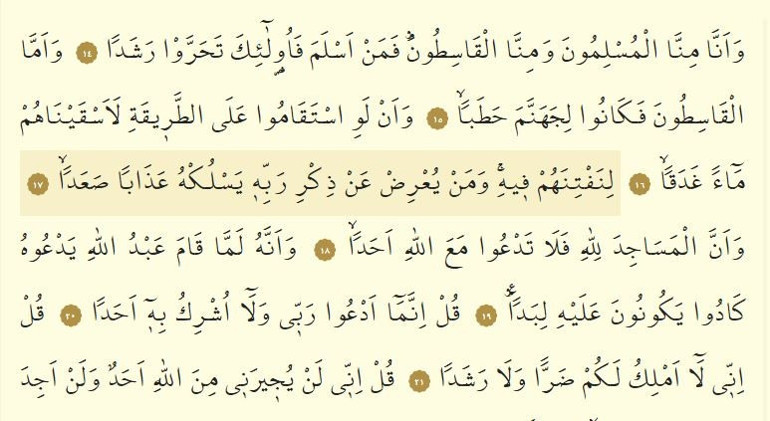 وَاَنَّا مِنَّا الْمُسْلِمُونَ وَمِنَّا الْقَاسِطُونَۜ فَمَنْ اَسْلَمَ فَاُو۬لٰٓئِكَ تَحَرَّوْا رَشَدًا ١٤ وَاَمَّا
الْقَاسِطُونَ فَكَانُوا لِجَهَنَّمَ حَطَبًاۙ ١٥ وَاَنْ لَوِ اسْتَقَامُوا عَلَى الطَّر۪يقَةِ لَاَسْقَيْنَاهُمْ
مَٓاءً غَدَقًاۙ ١٦ لِنَفْتِنَهُمْ ف۪يهِۜ وَمَنْ يُعْرِضْ عَنْ ذِكْرِ رَبِّه۪ يَسْلُكْهُ عَذَابًا صَعَدًاۙ ١٧
وَاَنَّ الْمَسَاجِدَ لِلّٰهِ فَلَا تَدْعُوا مَعَ اللّٰهِ اَحَدًاۙ ١٨ وَاَنَّهُ لَمَّا قَامَ عَبْدُ اللّٰهِ يَدْعُوهُ
كَادُوا يَكُونُونَ عَلَيْهِ لِبَدًاۜ۟ ١٩ قُلْ اِنَّمَٓا اَدْعُوا رَبّ۪ي وَلَٓا اُشْرِكُ بِه۪ٓ اَحَدًا ٢٠ قُلْ
اِنّ۪ي لَٓا اَمْلِكُ لَكُمْ ضَرًّا وَلَا رَشَدًا ٢١ قُلْ اِنّ۪ي لَنْ يُج۪يرَن۪ي مِنَ اللّٰهِ اَحَدٌ وَلَنْ اَجِدَ